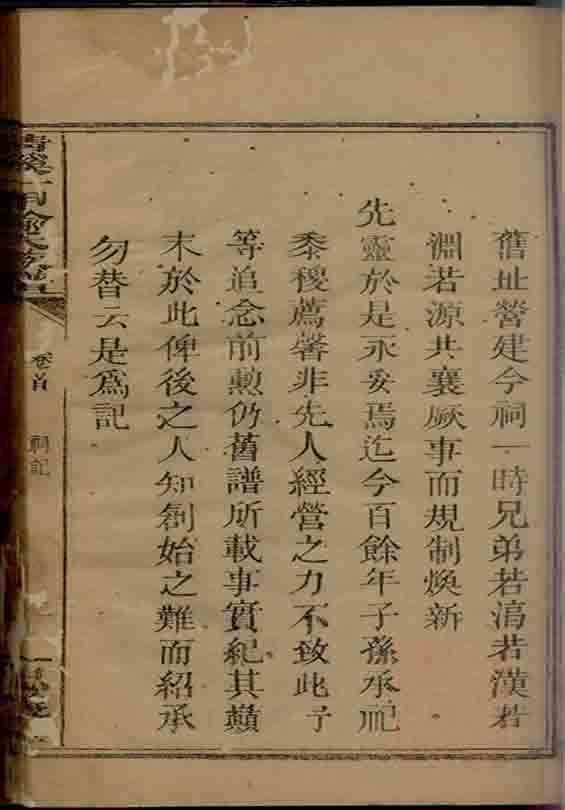 舊址營建今祠一時兄弟若漓若漢若
淵若源共襄厥事而規制煥新
先靈於是永妥焉迄今百餘年子孫承祀
黍稷薦馨非先人經營之力不致此予
等追念前勲仍舊譜所載事實紀其巔
末於此俾後之人知創始之難而紹承
勿替云是爲記
卷首
祠記